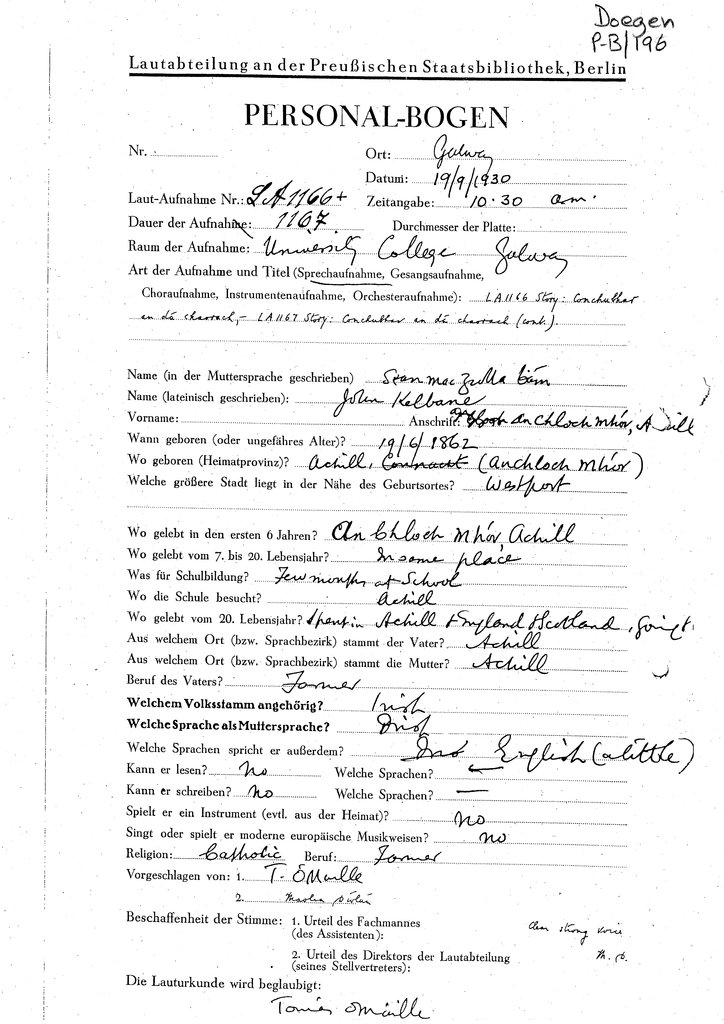 Doegen
P-B/196
Lautabteilung an der Preußischen Staatsbibliothek, Berlin
PERSONAL-BOGEN
Nr. Ort: Galway
Datum: 19/9/1930
Laut-Aufnahme Nr.: LA1166+ Zeitangabe: 10.30 am.
Dauer der Aufnahme: 1167. Durchmesser der Platte:
Raum der Aufnahme: University College Galway
Art der Aufnahme und Titel (Sprechaufnahme, Gesangsaufnahme,
Choraufnahme, Instrumentenaufnahme, Orchesteraufnahme): LA1166 Story: Conchubhar
an dá chaorach, - LA1167 Story: Conchubhar an dá chaorach (cont.).
Name (in der Muttersprache geschrieben) Sean mac
Name (lateinisch geschrieben): John Kelbane
Vorname: Anschrift: an Chloch Mhór, Achill
Wann geboren (oder ungefähres Alter)? 19/6/1862
Wo geboren (Heimatprovinz)? Achill, Connacht (an Chloch Mhór)
Welche größere Stadt liegt in der Nähe des Geburtsortes? Westport
Wo gelebt in den ersten 6 Jahren? An Chloch Mhór Achill
Wo gelebt vom 7. bis 20. Lebensjahr? In same place
Was für Schulbildung? Few months at School
Wo die Schule besucht? Achill
Wo gelebt vom 20. Lebensjahr? Spent in Achill + England Scotland,
Aus welchem Ort (bzw. Sprachbezirk) stammt der Vater? Achill
Aus welchem Ort (bzw. Sprachbezirk) stammt die Mutter? Achill
Beruf des Vaters? Farmer
Welchem Volksstamm angehörig? Irish
Welche Sprache als Muttersprache? Irish
Welche Sprachen spricht er außerdem? English (a little)
Kann er lesen? No Welche Sprachen? —
Kann er schreiben? No Welche Sprachen? —
Spielt er ein Instrument (evtl. aus der Heimat)? No
Singt oder spielt er moderne europäische Musikweisen? No
Religion: Catholic Beruf: Farmer
Vorgeschlagen von: 1. T. Ó Máille
2.
Beschaffenheit der Stimme: 1. Urteil des Fachmannes
(des Assistenten): strong voice
2. Urteil des Direktors der Lautabteilung
(seines Stellvertreters):
Die Lauturkunde wird beglaubigt:
Tomás Ó Máille